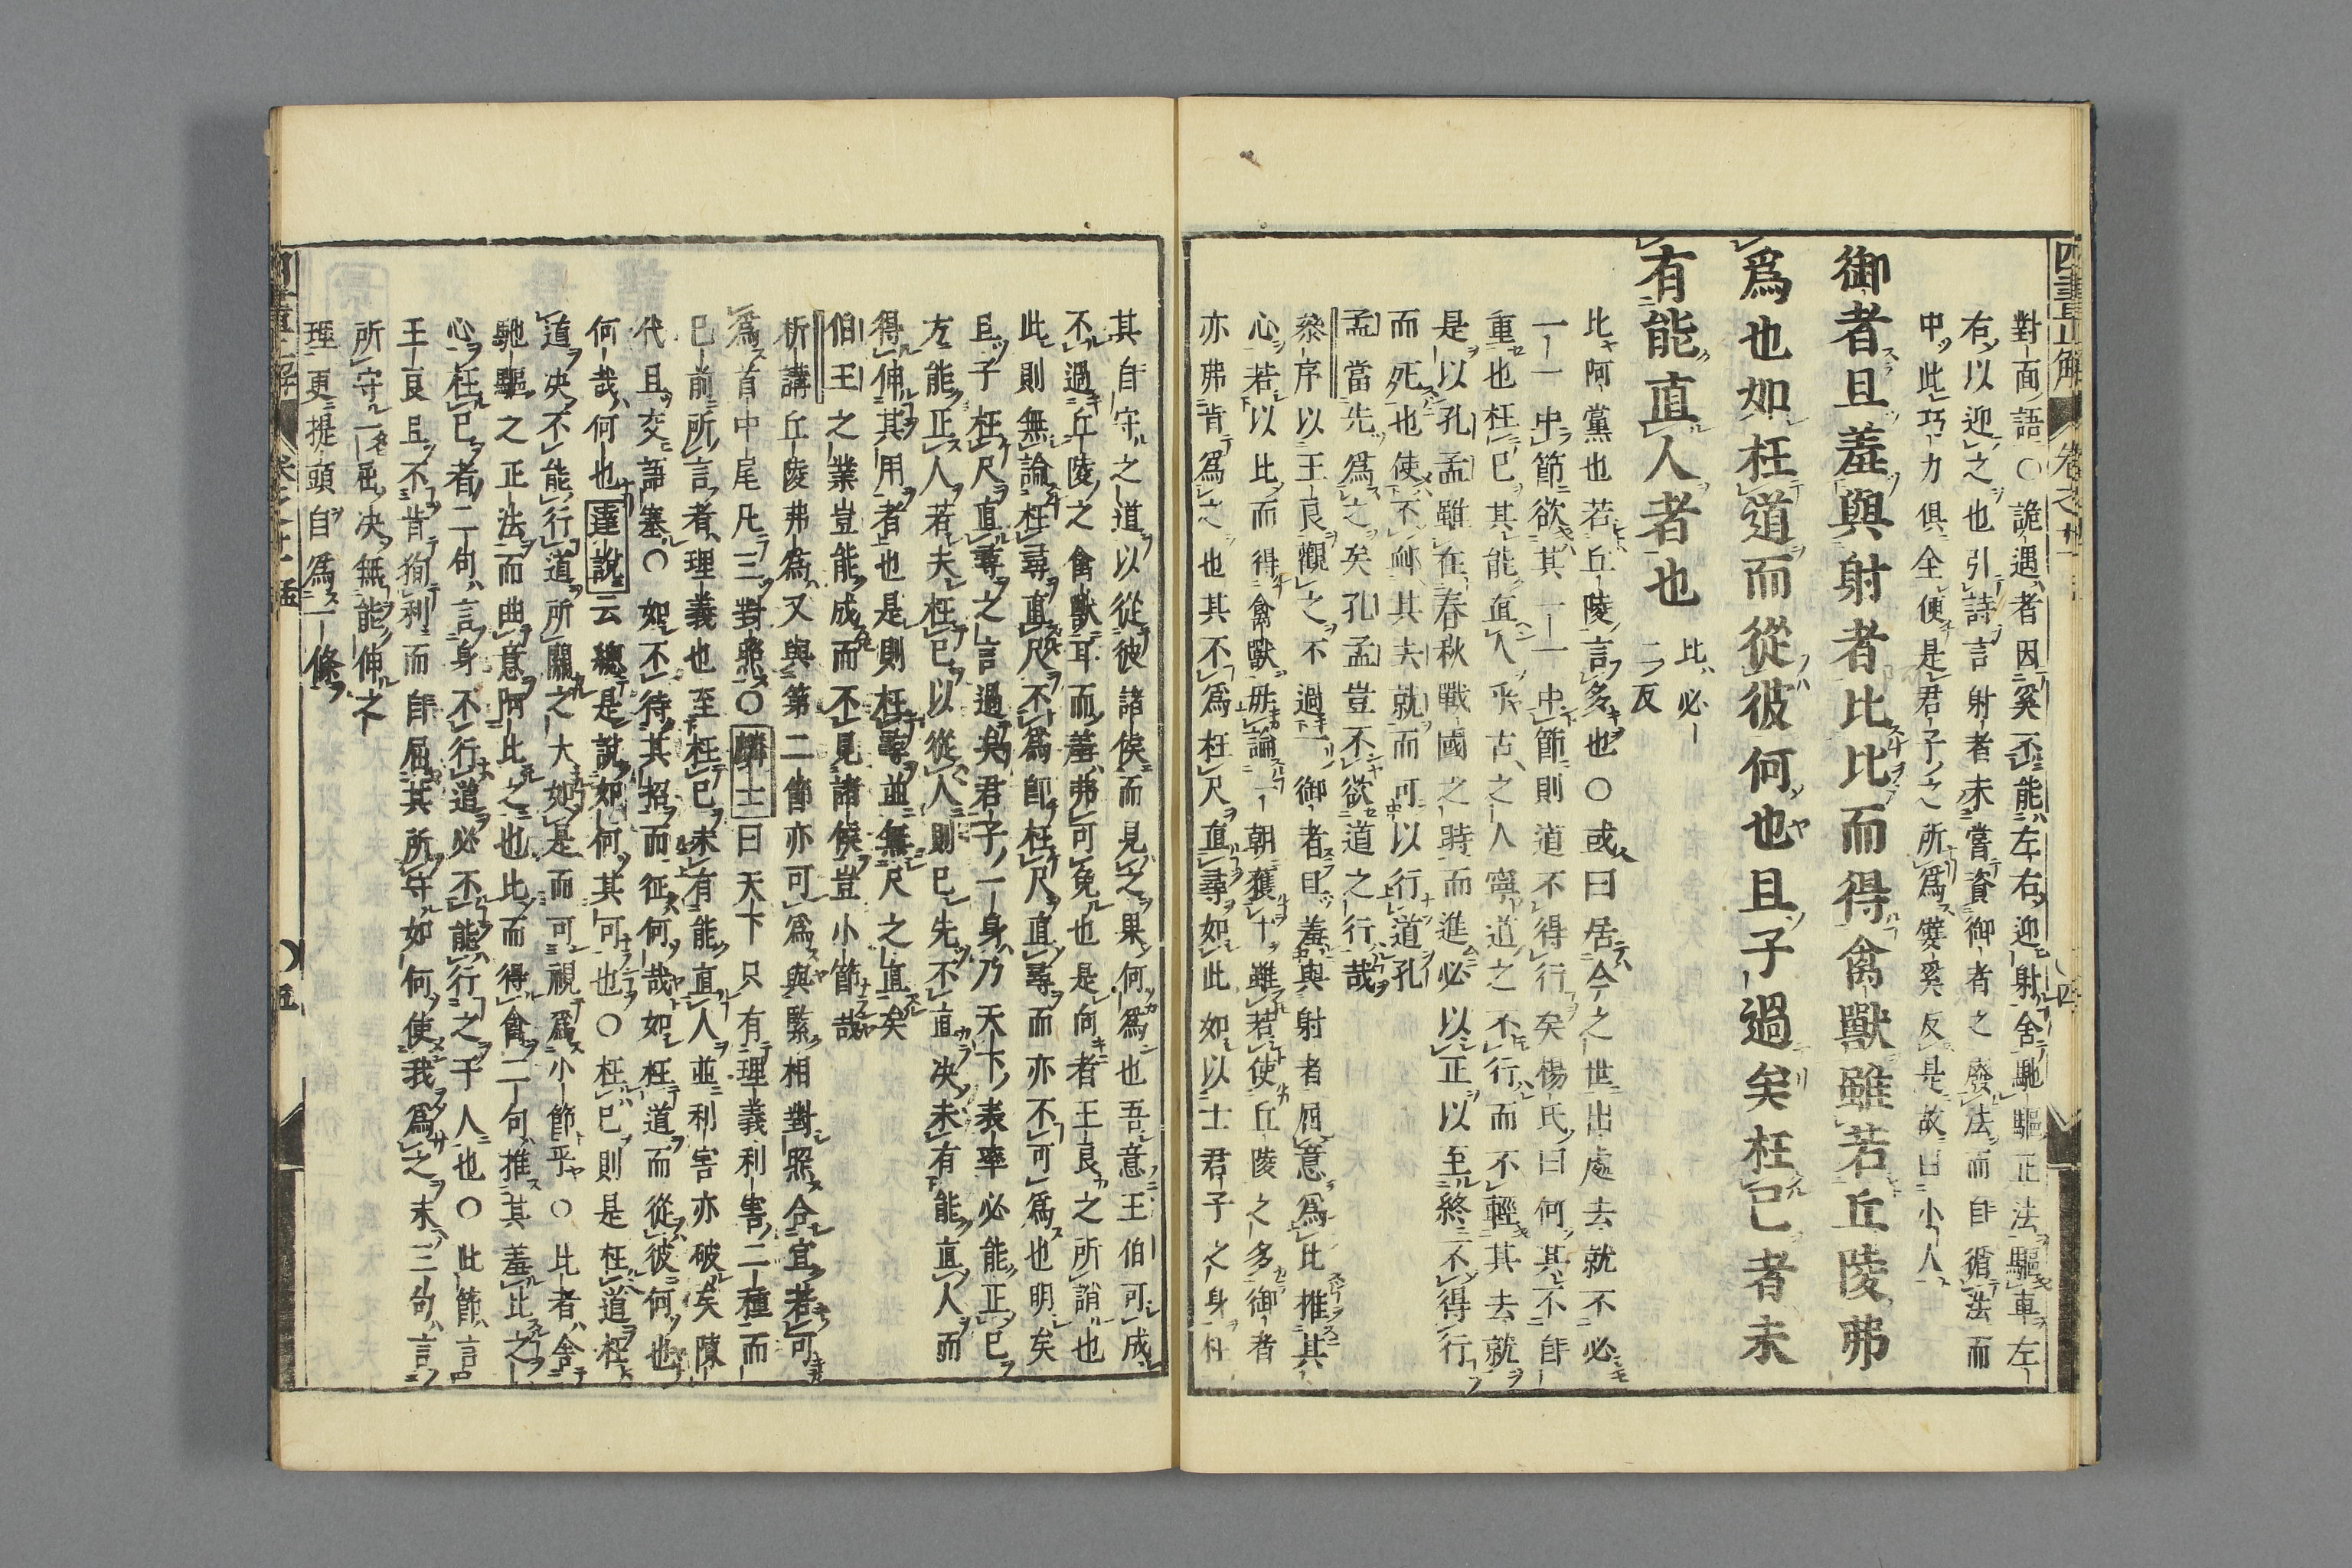 四書正解 卷之廿一 四
對面語○詭遇者因奚不能左右迎射舍馳驅正法驅車左
右以迎之也引詩言射者未嘗資御者之廢法而自循法而
中此巧力俱全便是君子之所爲嬖奚反是故曰小人
御者且羞與射者比比而得禽獸雖若丘陵弗
爲也如枉道而從彼何也且子過矣枉己者未
有能直人者也 比必二反
比阿黨也若丘陵言多也○或曰居今之世出處去就不必
一一中節欲其一一中節則道不得行矣楊氏曰何其不自
重也枉己其能直人乎古之人寧道之不行而不輕其去就
是以孔孟雖在春秋戰國之時而進必以正以至終不得行
而死也使不䘏其去就而可以行道孔
孟當先爲之矣孔孟豈不欲道之行哉
叅序以王良觀之不過一御者且羞與射者屈意爲比推其
心若以比而得禽獸毋論一朝獲十雖若使丘陵之多御者
亦弗肯爲之也其不爲枉尺直尋如此如以士君子之身枉
其自守之道以從彼諸侯而見之果何爲也吾意王伯可成
不過丘陵之禽獸耳而羞弗可免也是向者王良之所誚也
此則無論枉尋直尺不爲卽枉尺直尋而亦不可爲也明矣
且子枉尺直尋之言過矣君子一身乃天下表率必能正己
方能正人若夫枉己以從人則己先不直決未有能直人而
得伸其用者也是則枉尋並無尺之直矣
伯王之業豈能成而不見諸侯豈小節哉
析講丘陵弗爲又與第二節亦可爲與緊相對照合宜若可
爲首中尾凡三對照○麟士曰天下只有理義利害二種而
已前所言者理義也至枉己未有能直人並利害亦破矣陳
代且交語塞○如不待其招而征何哉如枉道而從彼何也
何哉何也達說云總是說如何其可也○枉己則是枉道枉
道決不能行道所關之大如是而可視爲小節乎○比者舍
馳驅之正法而曲意阿比之也比而得禽二句推其羞比之
心枉己者二句言身不行道必不能行之于人也○此節言
王良且不肯狥利而自屈其所守如何使我爲之末三句言
所守一屈決無能伸之
理更提頭自爲一條